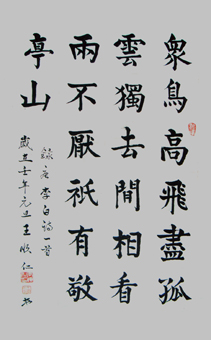 衆鳥高飛盡孤
雲獨去間相看
兩不厭祇有敬
亭山
錄唐李白詩一首
歲 壬午元旦王 仁